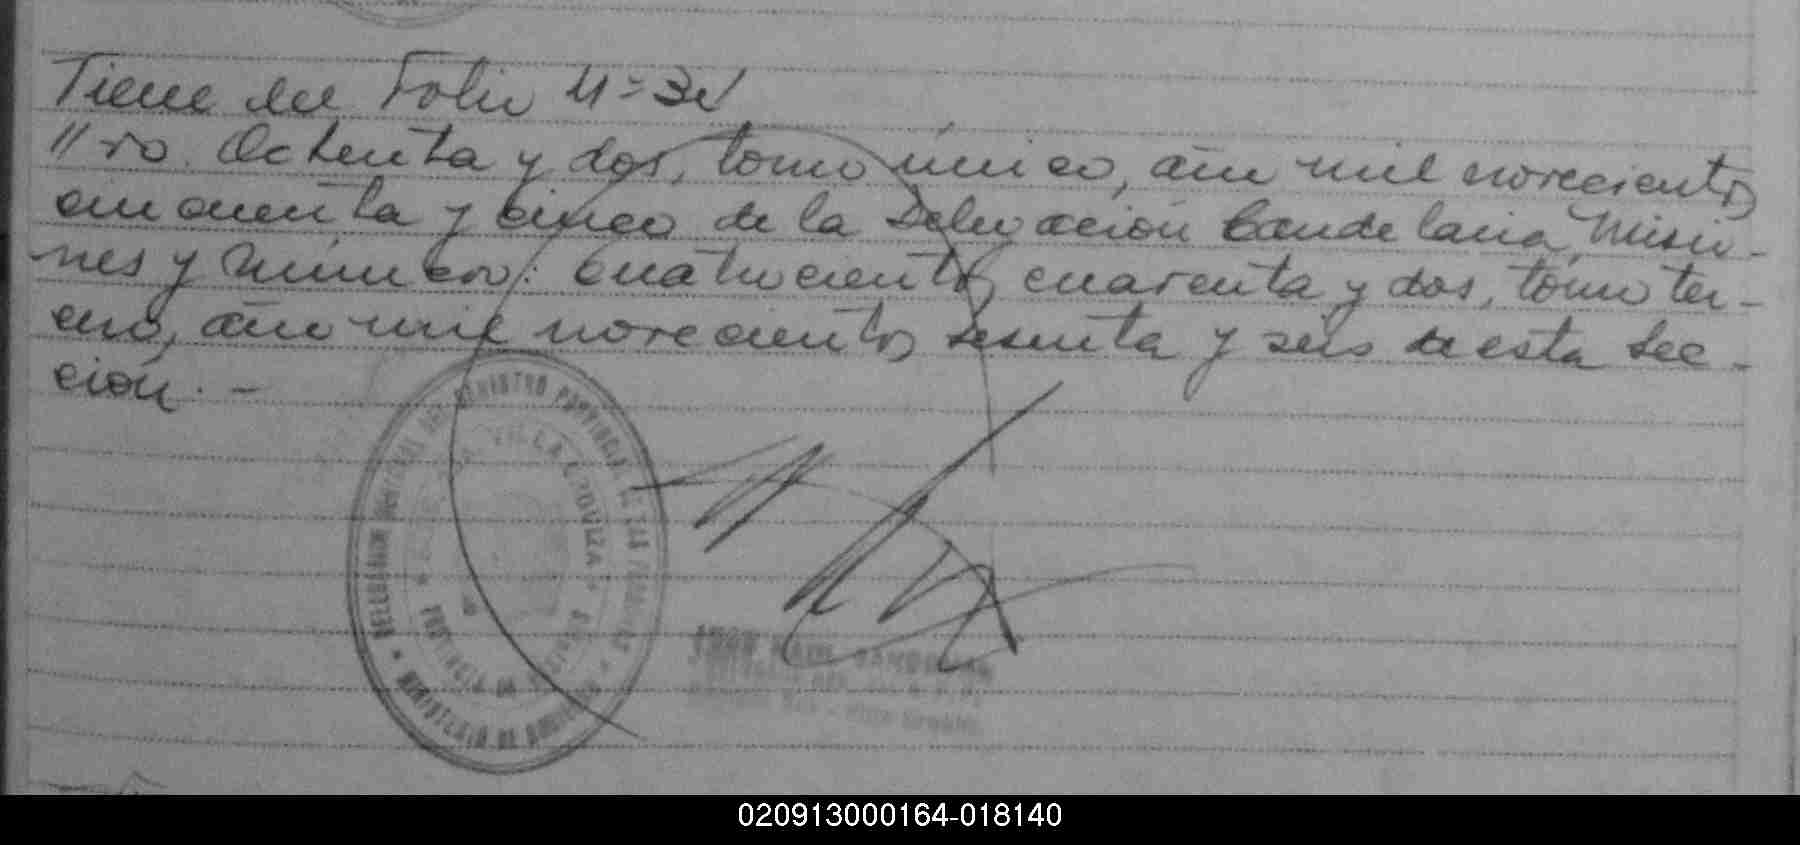 Tiene del Folio Nº 3d
"ro. Ochenta y dos, tomo único, año mil novecientos
cincuenta y cinco de la Delegación Candelaria, Misio-
nes y número: cuatrocientos cuarenta y dos, tomo ter-
cero, año mil novecientos sesenta y seis de esta Sec-
ción. -
REGISTRO PROVINCIAL DE LAS PERSONAS
DELEGACION
MINISTERIO DE GOBIERNO
VILLA URQUIZA
PROVINCIA
020913000164-018140